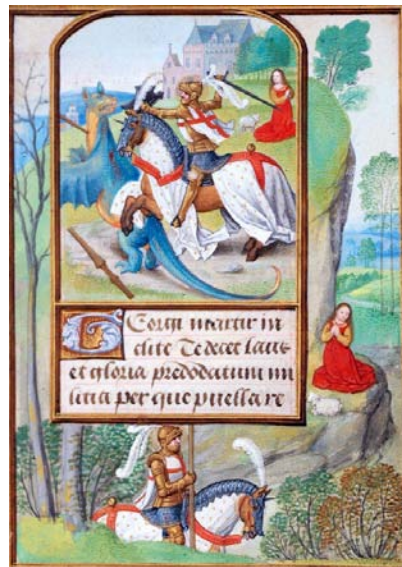 Georgi martir in
clite Te decet laus
et gloria predotatum mi
litia per que puella re